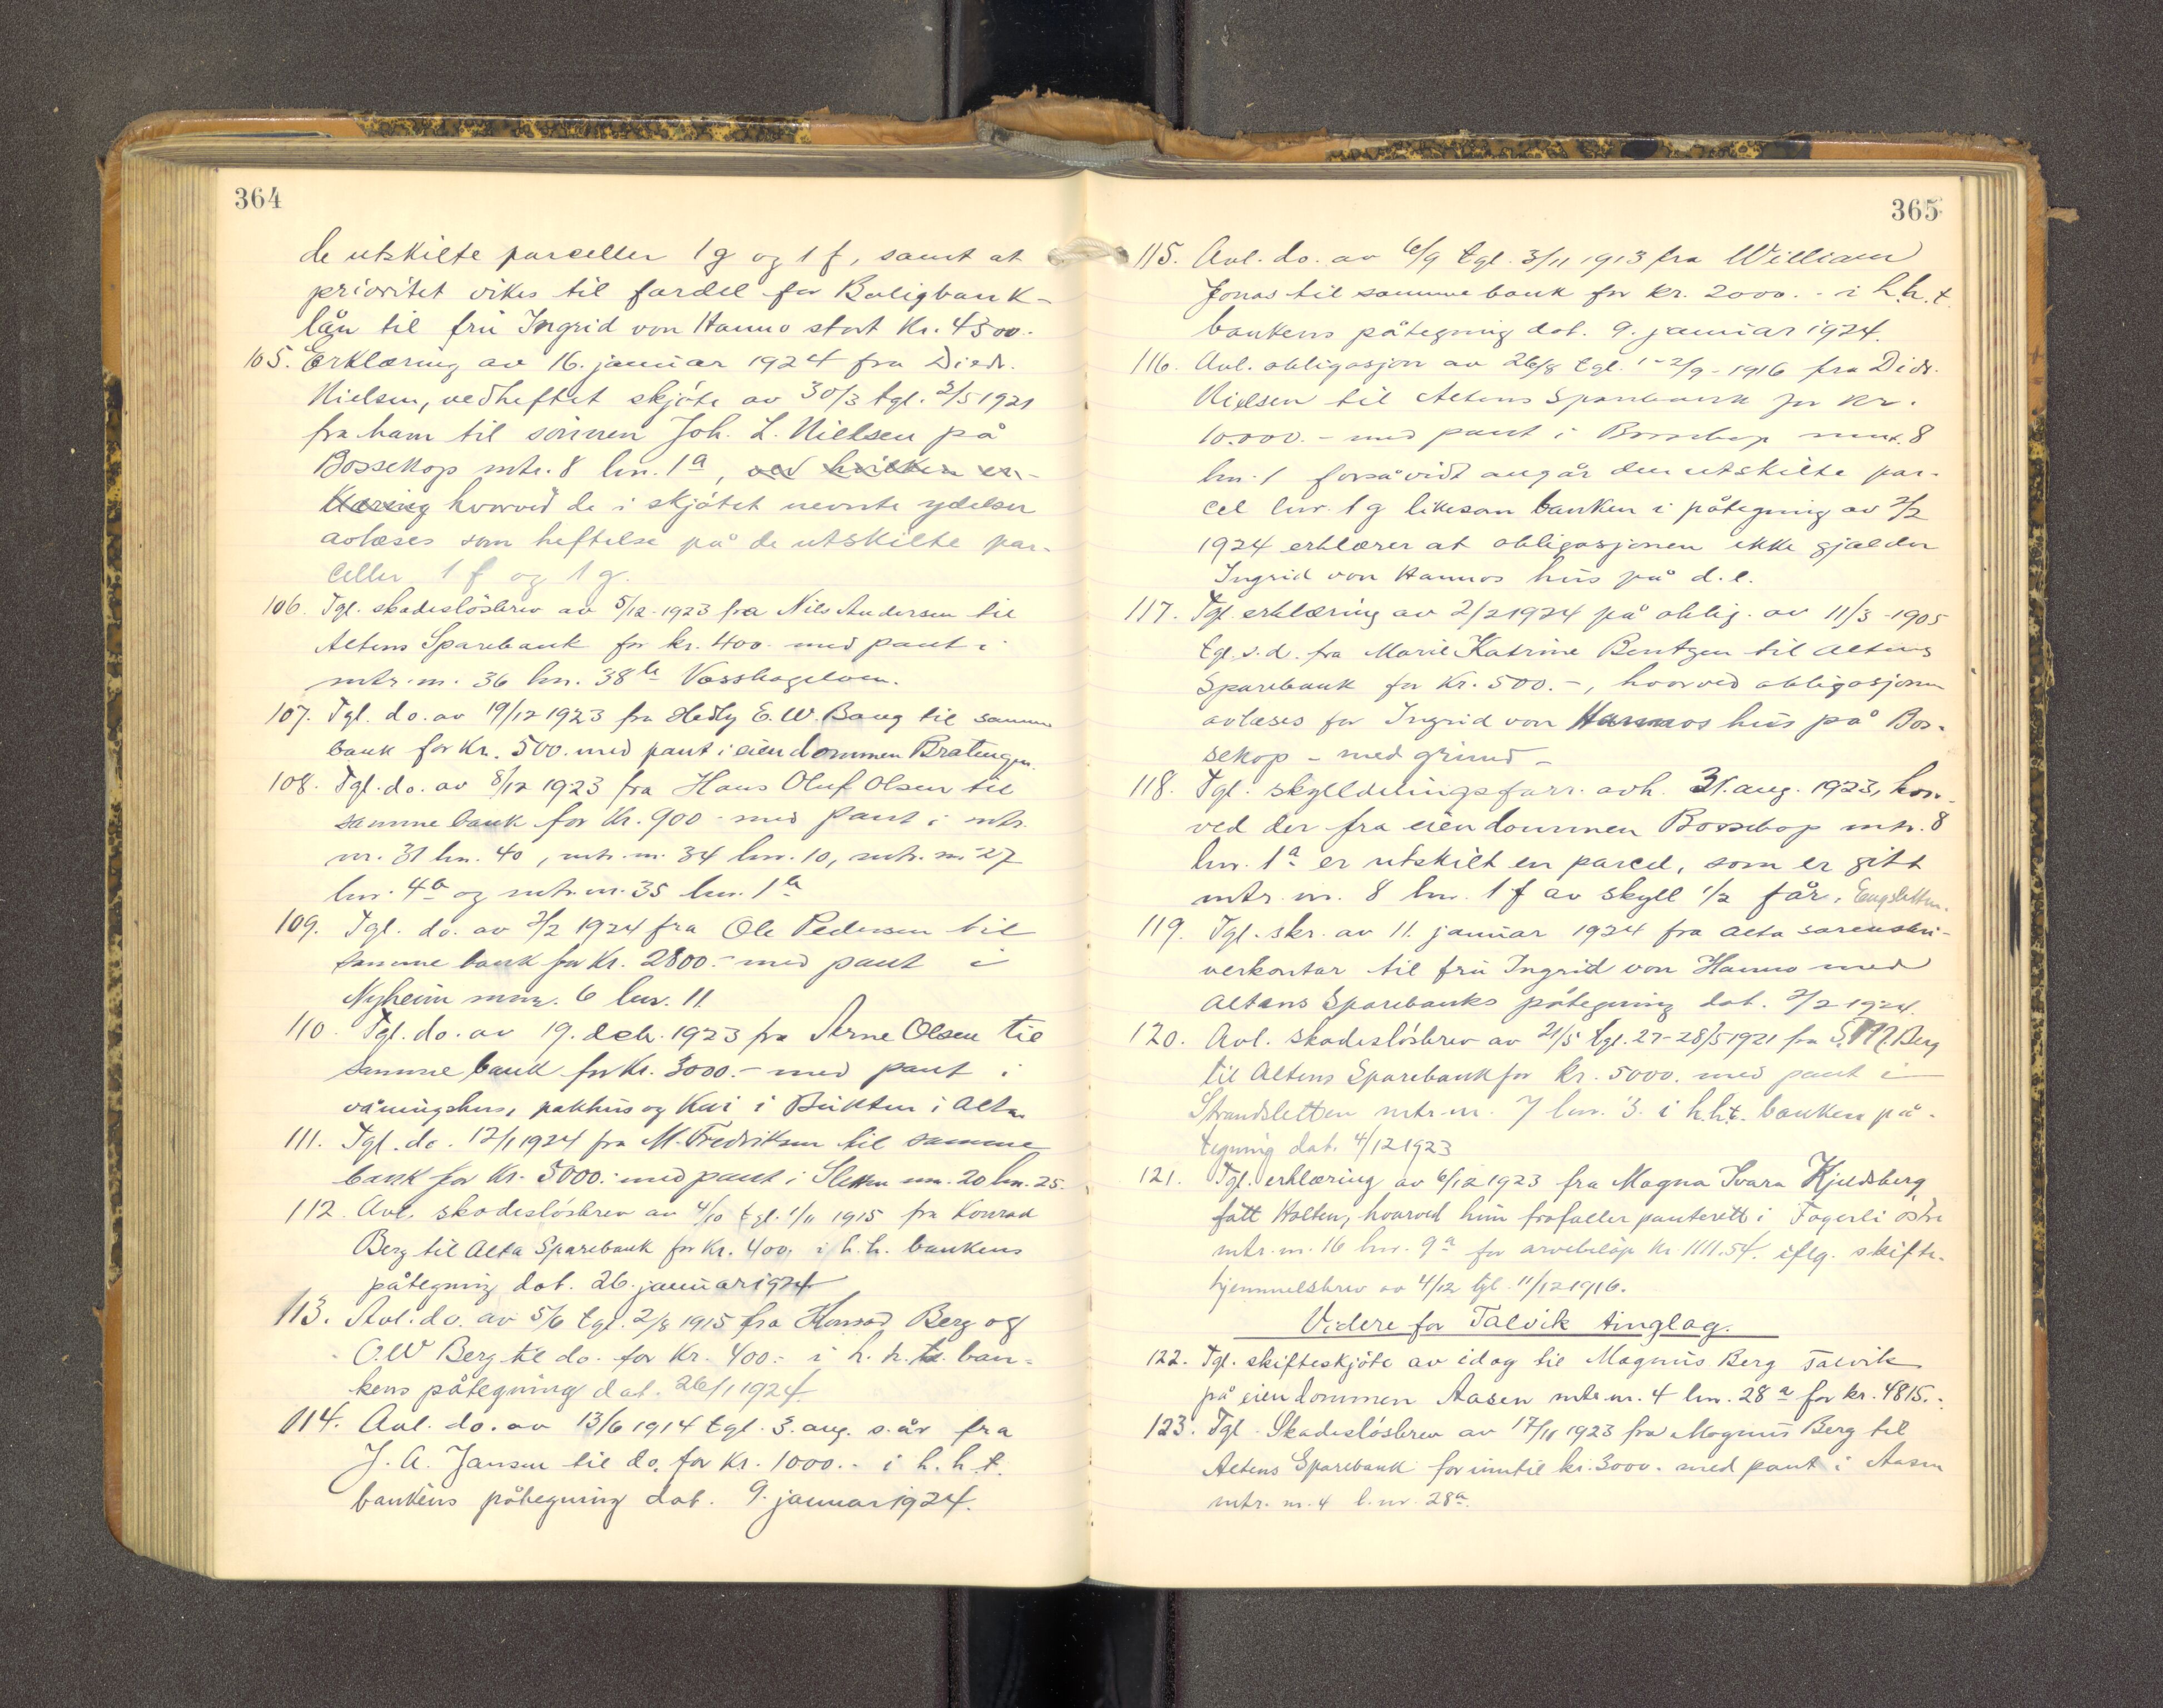 364
de utskilte parceller 1g og 1f, samt at
prioritet vikes til fordel for Boligbank-
lån til frü Ingrid von Hanno stort kr. 4500.
105. Erklæring av 16. januar 1924 fra Diedr.
Nielsen, vedheftet skjøte av 30/3 tgl. 2/5 1921
fra ham til sønnen Joh. L. Nielsen på
Bossekop mtr. 8 lnr. 1a, ved hvilken er-
klæring hvorved de i skjøtet nevnte ydelser
avlæses som heftelse på de utskilte par-
celler 1f og 1g.
106. Tgl. skadesløsbrev av 5/12-1923 fra Nils Andersen til
Altens Sparebank for kr. 400 med pant i
mtr. nr. 36 lnr. 38 b
107. Tgl. do. av 19/12 1923 fra Hedly E. W. Bang til samme
bank for kr. 500. med pant i eiendommen Bratengen.
108. Tgl. do. av 8/12 1923 fra Hans Oluf Olsen til
samme bank for kr. 900 - med pant i mtr.
nr. 31 lnr. 40, mtr. nr. 34 lnr. 10, mtr. nr. 27
lnr. 4a og mtr. nr. 35 lnr. 1a
109. Tgl. do. av 2/2 1924 fra Ole Pedersen til
samme bank for kr. 2800.- med pant i
Nyheim mnr. 6 lnr. 11
110. Tgl. do. av 19. deb. 1923 fra Arne Olsen til
samme bank for kr. 3000.- med pant i
våningshus, pakhus og kai i Bukten i Alta
111. Tgl. do. 12/1 1924 fra M. Fredriksen til samme
bank for kr. 5000.- med pant i Sletten mnr. 20 lnr. 25.
112. Avl. skadesløsbrev av 4/10 tgl. 1/11 1915 fra Konrad
Berg til Alta Sparebank for kr. 400. i h.h. bankens
påtegning dat. 26. januar 1924
113. Avl. do. av 5/6 tgl. 2/8 1915 fra Konrad Berg og
O.W Berg til do. for kr. 400.- i h. h. t. ban-
kens påtegning dat. 26/1 1924.
114. Avl. do. av 13/6 1914 tgl. 3. aug. s. år fra
J. A. Jansen til do. for kr. 1000.- i h. h. t.
bankens påtegning dat. 9. januar 1924.
365
115. Avl. do. av 6/9 tgl. 3/11 1913 fra William
Jonas til samme bank for kr. 2000.- i h.h.t.
bankens påtegning dat. 9. januar 1924.
116. Avl. obligasjon av 26/8 tgl. 1-2/9-1916 fra Didr.
Nielsen til Altens Sparebank for kr.
10.000.- med pant i Bossekop mnr. 8
lnr. 1 forsåvidt angår den utskilte par-
cel lnr. 1g likesom banken i påtegning av 2/2
1924 erklærer at obligasjonen ikke gjælder
Ingrid von Hannos hüs på d. e.
117. Tgl. erklæring av 2/2 1924 på oblig. av 11/3-1905
tgl. s.d. fra Marie Katrine Bentzen til Altens
Sparebank for kr. 500.-, hvorved obligasjonen
avlæses for Ingrid von Hannos hüs på Bos-
sekop - med grund -
118. Tgl. skylddelingsforr. avh. 31. aug. 1923, hvor-
ved der fra eiendommen Bossekop mtr. 8
lnr. 1a er utskilt en parcel, som er gitt
mtr. nr. 8 lnr. 1f av skyll 1/2 får. Engsletten.
119. Tgl. skr. av 11. januar 1924 fra Alta sorenskri-
verkontor til frü Ingrid von Hanno med
Altens Sparebanks påtegning dat. 2/2 1924.
120. Avl. skadesløsbrev av 21/5 tgl. 27-28/5 1921 fra Berg
til Altens Sparebank for kr. 5000. med pant i
Strandsletten mtr. nr. 7 lnr. 3. i h.h.t. banken på-
tegning dat. 4/12 1923
121. Tgl. erklæring av 6/12 1923 fra Magna Ivara Kjeldsberg,
født Holten, hvorved hun frafaller panterett i Fagerli østre
mtr. nr. 16 lnr. 9a for arvebeløp kr 1111.54. iflg. skifte-
hjemmelsbrev av 4/12 tgl. 11/12 1916.
Videre for Talvik tinglag.
122. Tgl. skifteskjøte av idag til Magnüs Berg Talvik
på eiendommen Aasen mtr. nr. 4 lnr. 28a for kr. 4815.-
123. Tgl. Skadesløsbrev av 17/11 1923 fra Magnüs Berg til
Altens Sparebank for inntil kr. 3000. med pant i Aasen
mtr. nr. 4 l. nr. 28a.